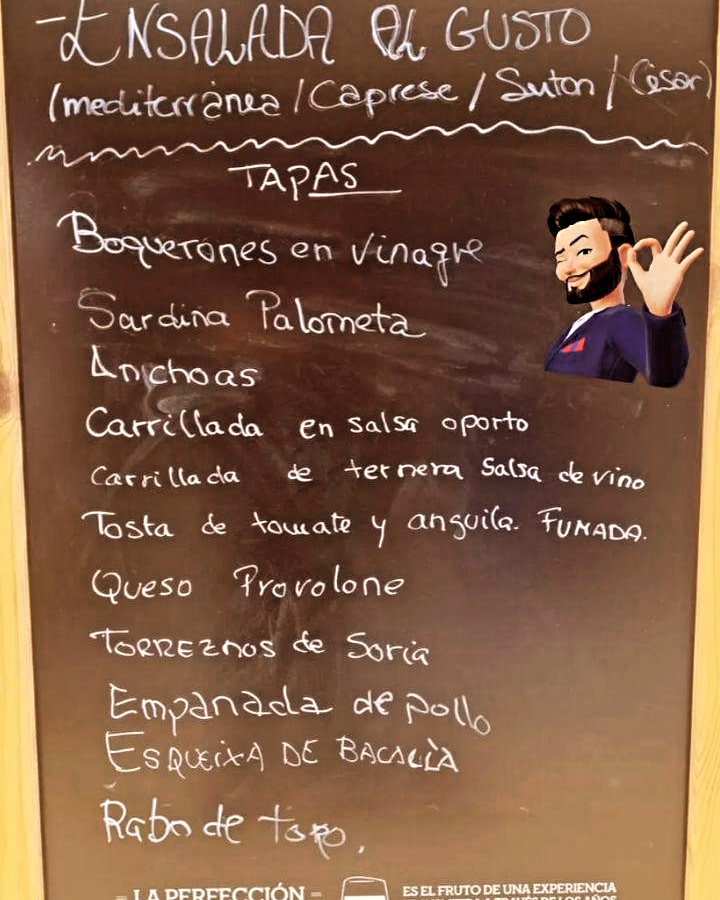 - ENSALADA AL GUSTO
(mediterrànea / Caprese / Suton / César)
TAPAS
Boquerones en vinagre
Sardina Palometa
Anchoas
Carrillada en salsa oporto
Carrillada de ternera Salsa de vino
Tosta de tomate y anguila. FUMADA.
Queso Provolone
TORREZNOS de Soria
Empanada de pollo
ESQUEIXA DE BACALLÀ
Rabo de toro.
- LA PERFECCIÓN -
ES EL FRUTO DE UNA EXPERIENCIA